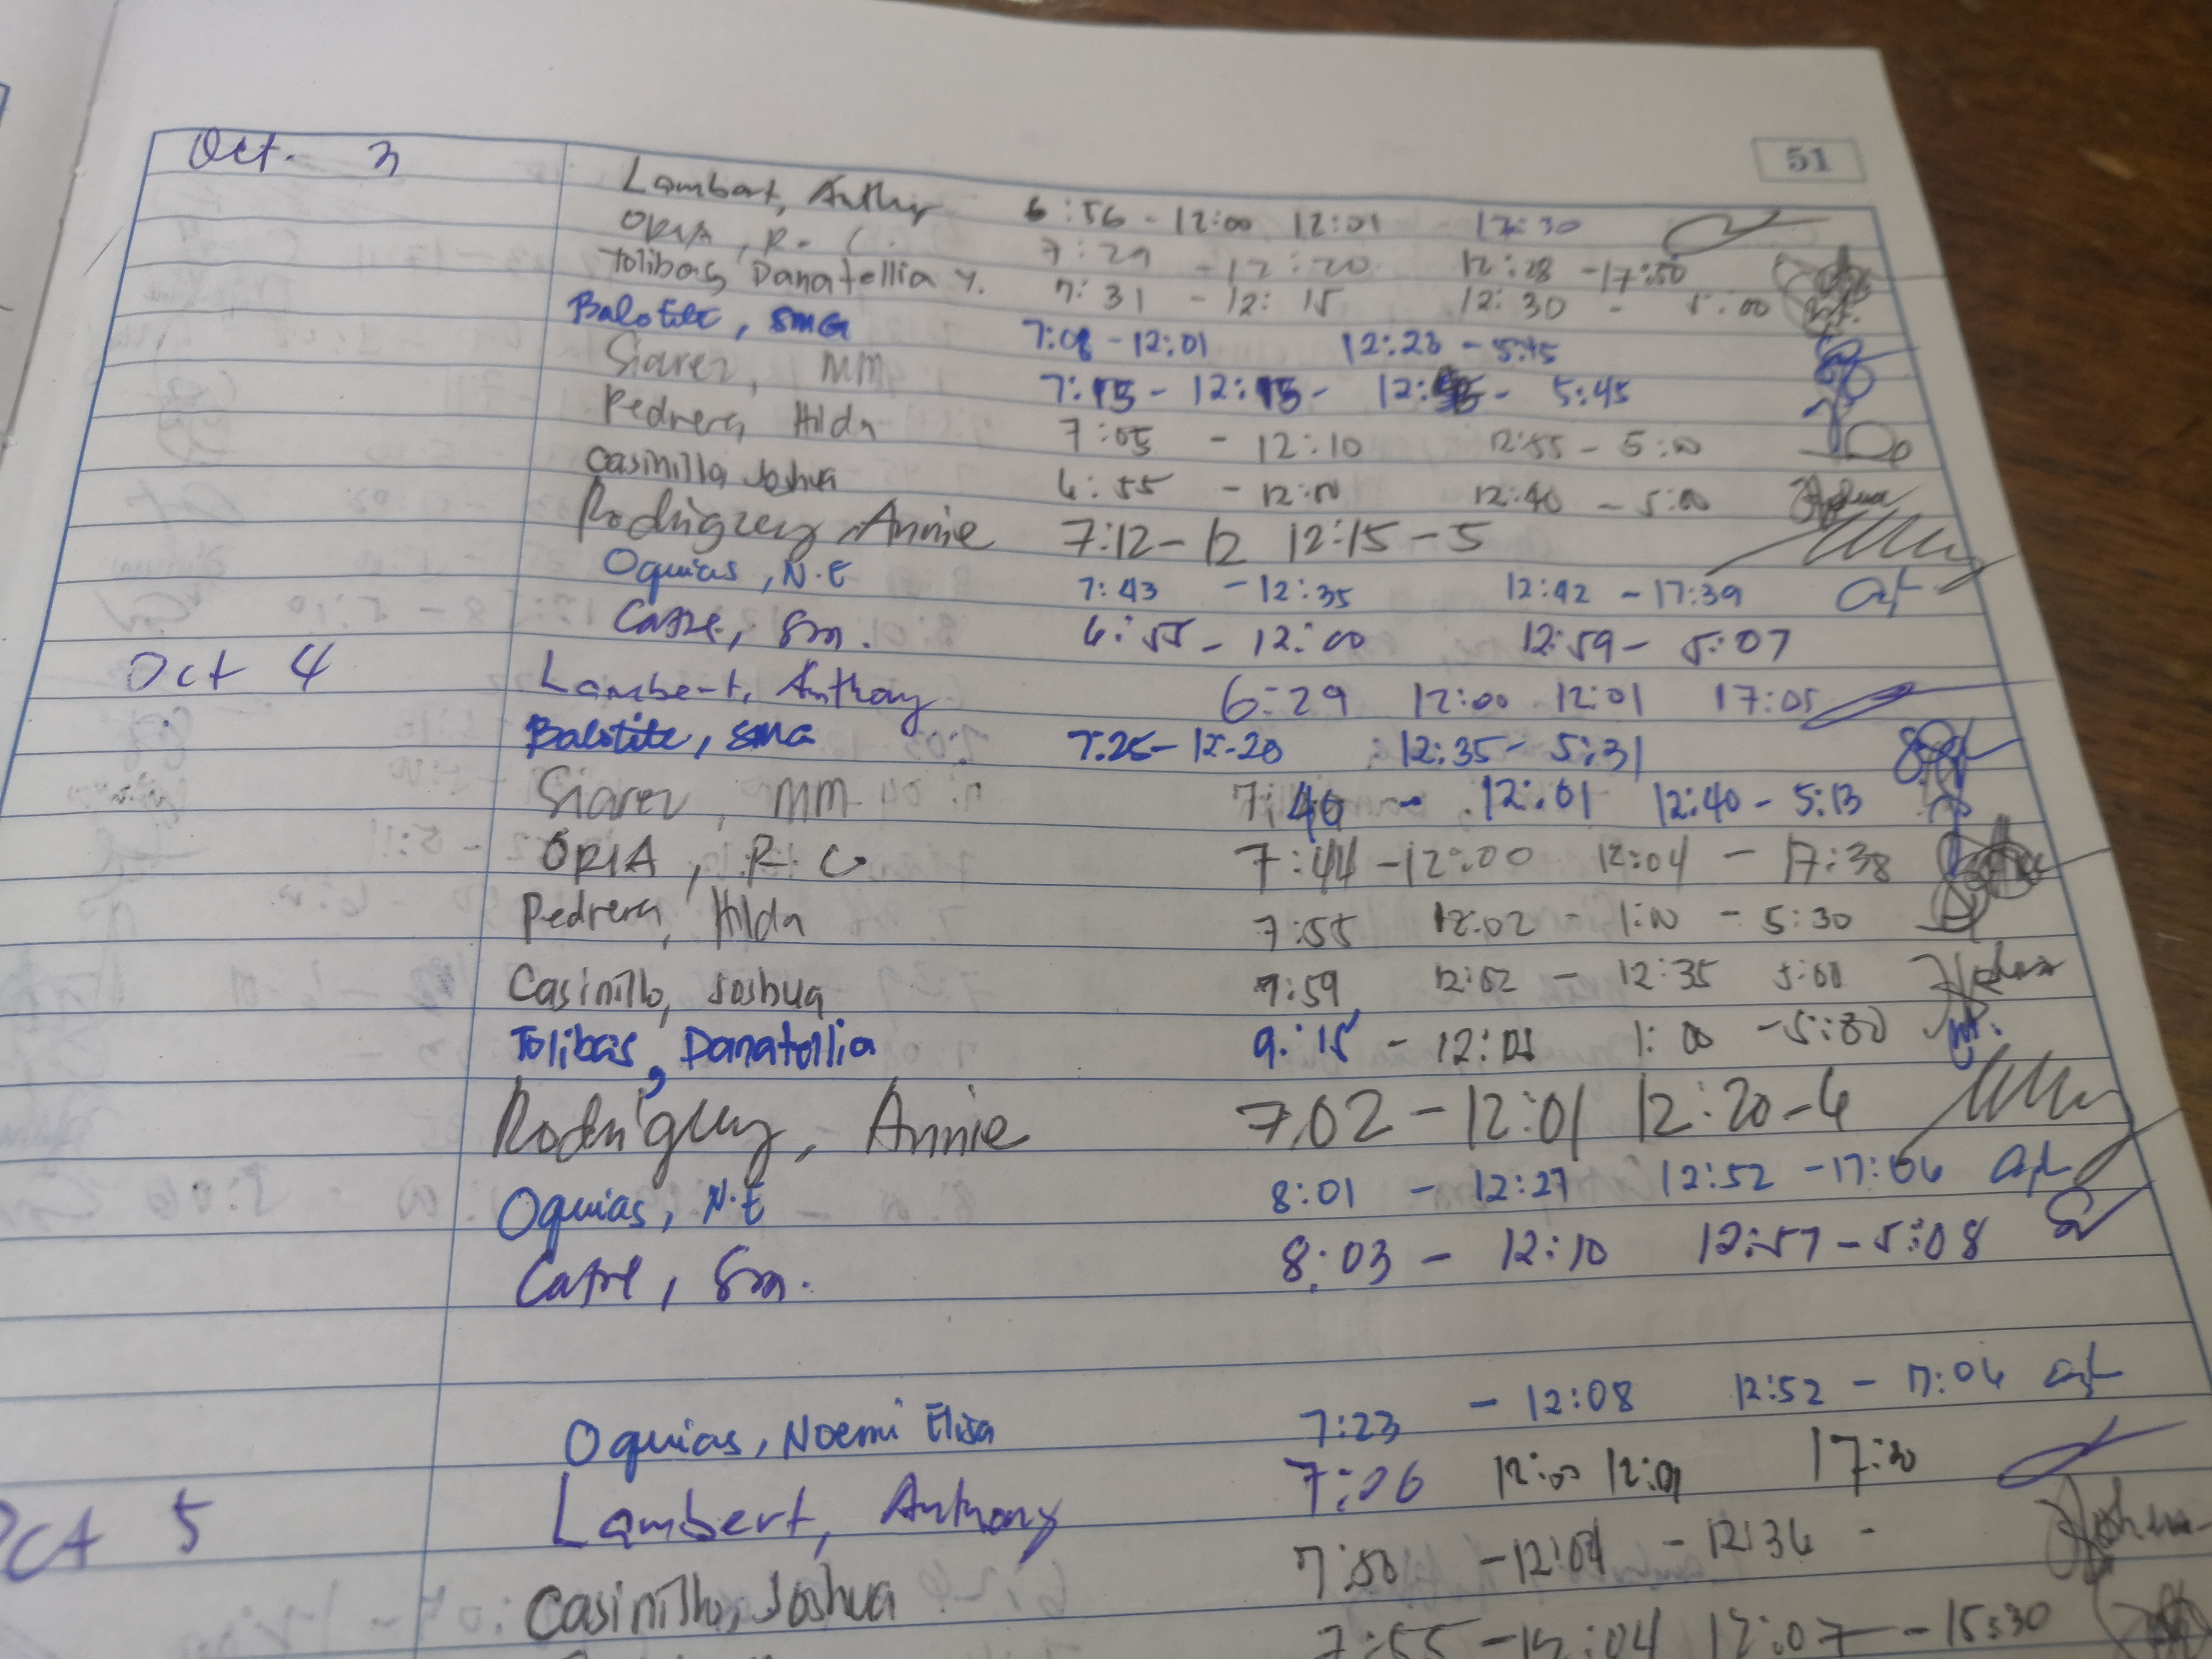 51
Oct. 3 Lambert, Anthy 6:56 - 12:00 12:01 - 17:30
ORIA, R. C. 7:29 - 12:20 12:28 - 17:50
Tolibas Danatellia Y. 7:31 - 12:15 12:30 - 5:00
Balotite, SMG 7:08 - 12:01 12:23 - 5:45
Siarez, MM 7:15 - 12:15 - 5:45
Pedrera, Hilda 7:05 - 12:10 12:55 - 5:00
Casinillo Joshua 6:55 - 12:00 12:40 - 5:00
Rodriguez, Annie 7:12 - 12 12:15 - 5
Oquias, N.E 7:43 - 12:35 12:42 - 17:39
Catre, Sm. 6:55 - 12:00 12:59 - 5:07
Oct 4 Lambert, Anthony 6:29 12:00 12:01 17:05
Balotite, SMG 7:25 - 12-20 12:35 - 5:31
Siarez, MM 7:40 - 12:01 12:40 - 5:13
ORIA, R. C 7:44 - 12:00 12:04 - 17:38
Pedrera, Hilda 7:55 12:02 - 1:00 - 5:30
Casinillo, Joshua 7:59 12:02 - 12:35 5:00
Tolibas, Danatellia 9:15 - 1:00 - 5:30
Rodriguez, Annie 7:02 - 12:01 12:20 - 6
Oquias, N.E 8:01 - 12:27 12:52 - 17:06
Catre, Sm. 8:03 - 12:10 12:57 - 5:08
Oquias, Noemi Elisa 7:23 - 12:08 12:52 - 17:04
Oct 5 Lambert, Anthony 7:06 12:00 12:01 17:30
Casinillo, Joshua 7:50 - 12:04 - 12:36 -
7:55 - 12:04 12:07 - 15:30